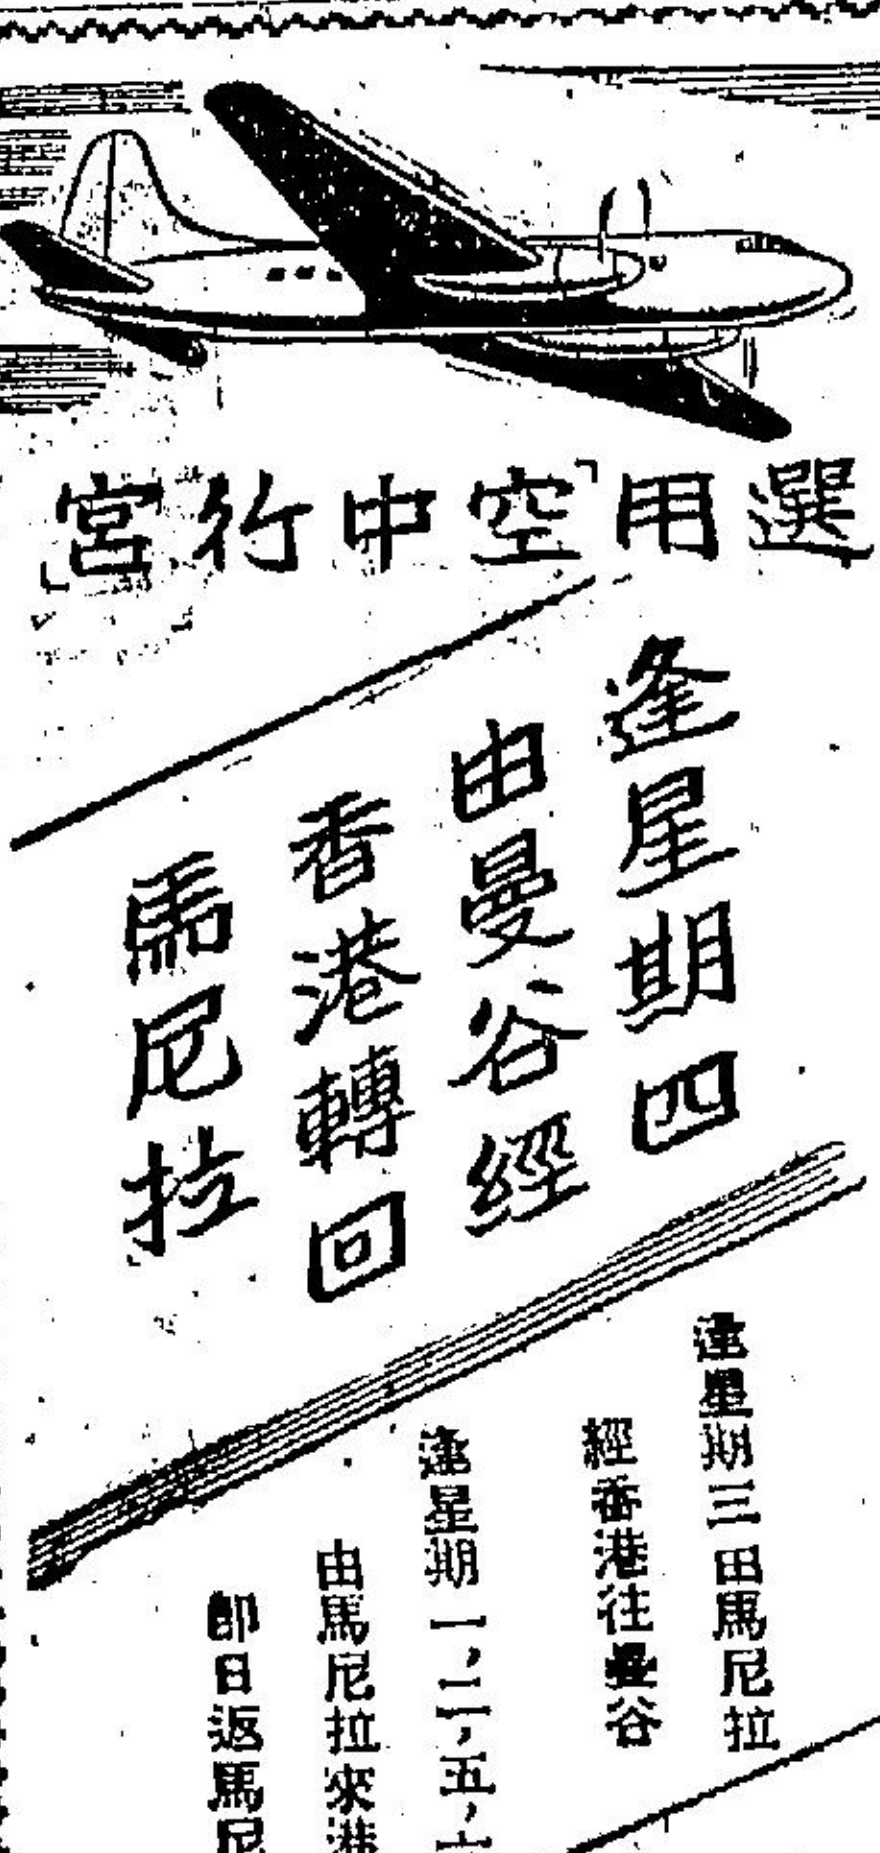 選用「空中行宮」
逢星期四
由曼谷經
香港轉回
馬尼拉
逢星期三由馬尼拉
經香港往曼谷
逢星期一，二，五，
由馬尼拉來港
即日返馬尼